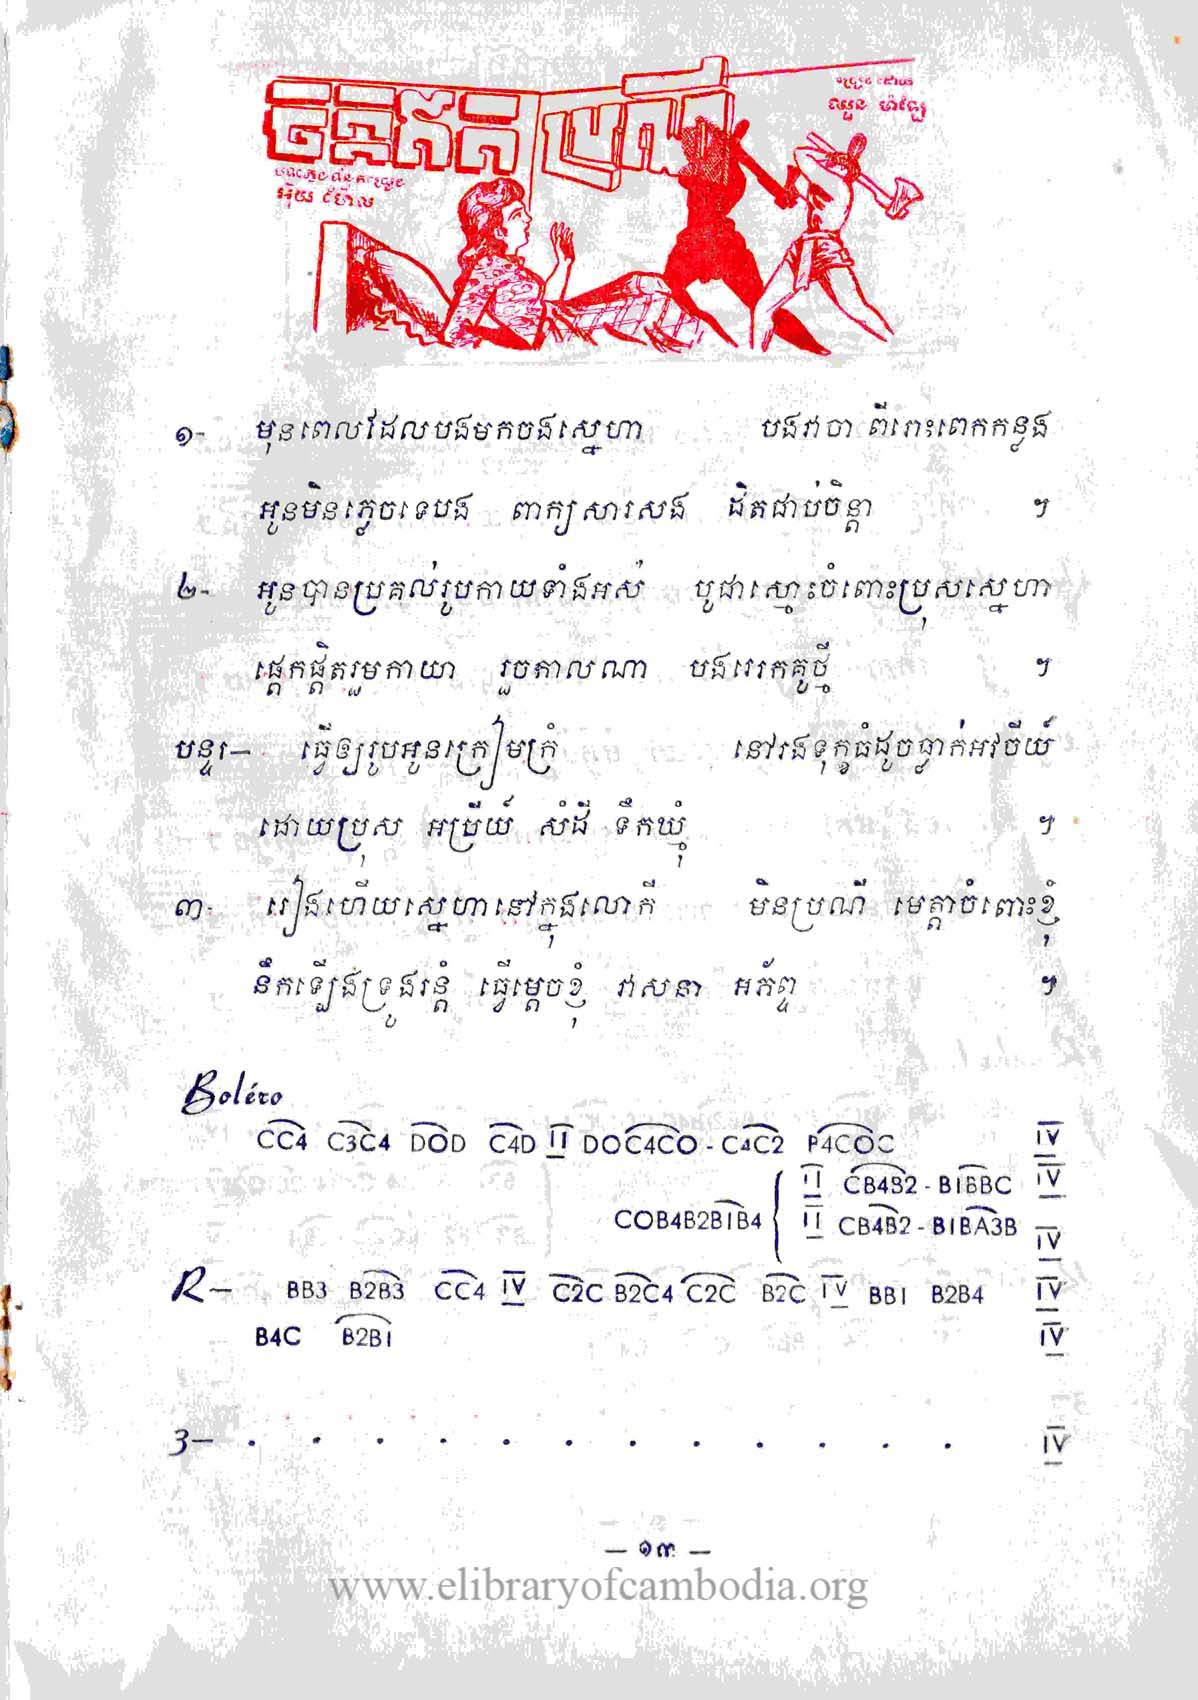 ចិត្តឥតប្រណី
ច្រៀងដោយ
ឈួន ម៉ាឡៃ
អ៊ុយ ប៉ារីស
១- មុនពេលដែលបងមកចងស្នេហា បងវាចា ពីរោះពេកកន្លង
អូនមិនភ្លេចទេបង ពាក្យសារសង ដិតជាប់ចិន្តា ៗ
២- អូនបានប្រគល់រូបកាយទាំងអស់ បូជាស្មោះចំពោះប្រុសស្នេហា
ផ្ដេកផ្ដិតរួមកាយា រួចកាលណា បងរេរកគូថ្មី ៗ
បន្ទរ— ធ្វើឲ្យរូបអូនគ្រៀមក្រំ នៅរងទុក្ខធំដូចធ្លាក់អវចីយ៍
ដោយប្រុស អប្រីយ៍ សំដី ទឹកឃ្មុំ ៗ
៣- រៀងហើយស្នេហានៅក្នុងលោកី មិនប្រណី មេត្តាចំពោះខ្ញុំ
នឹកឡើងទ្រូងរន្តំ ធ្វើម្ដេចខ្ញុំ វាសនា អភ័ព្វ ៗ
Boléro
CC4 C3C4 DOD C4D II DOC4CO - C4C2 P4COC IV
II CB4B2 - B1BBC IV
COB4B2B1B4
II CB4B2 - B1BA3B IV
R— BB3 B2B3 CC4 IV C2C B2C4 C2C B2C IV BB1 B2B4 IV
B4C B2B1 IV
3— . . . . . . . . . . . . IV
— ១៣ —
www.elibraryofcambodia.org